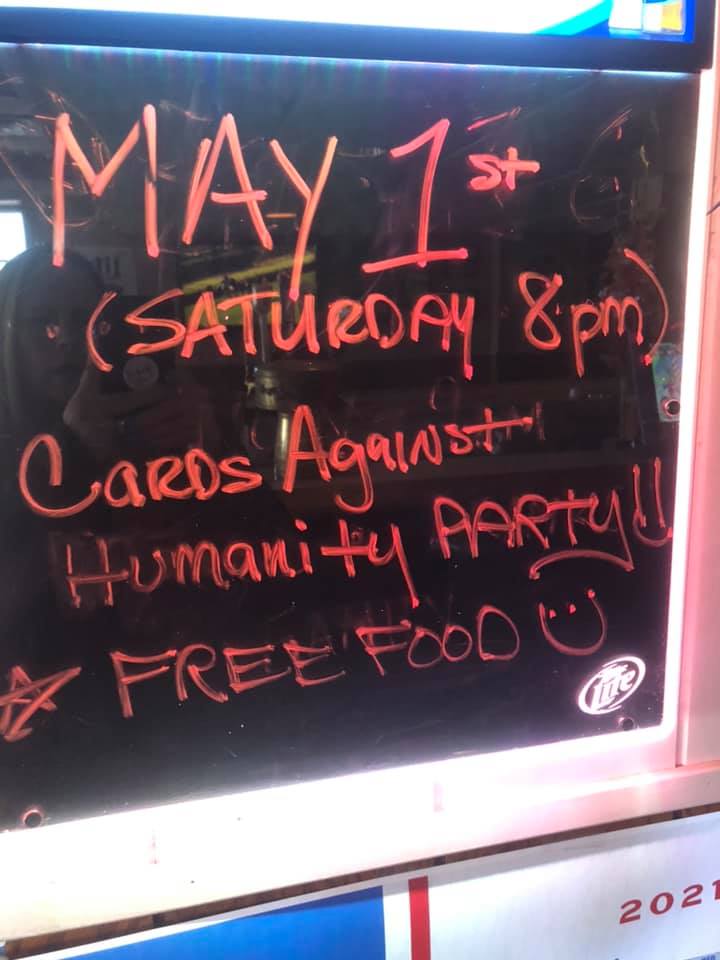 MAY 1st
(SATURDAY 8pm)
CARDS Against
Humanity PARTY!!
FREE FOOD
Lite
2021